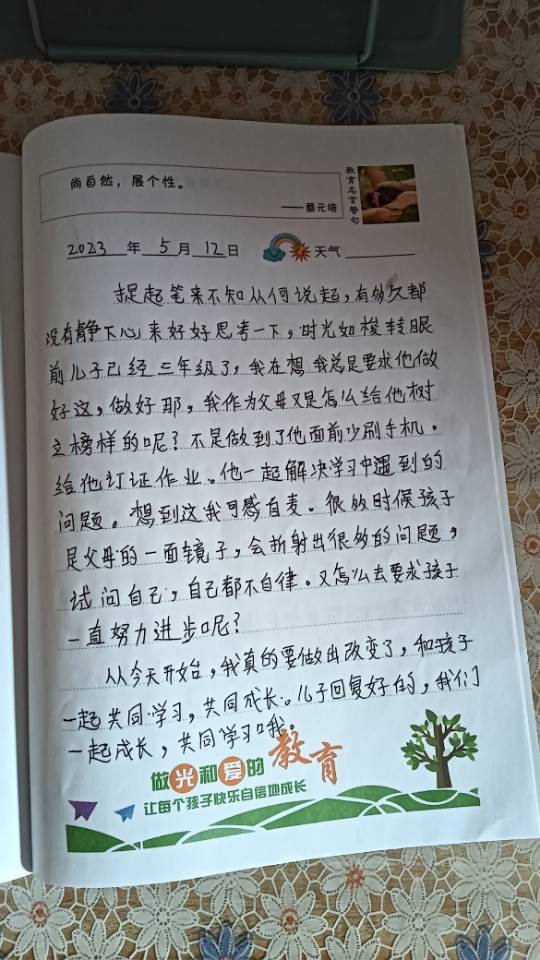 尚自然，展个性。
——蔡元培
教育名言警句
2023年5月12日 天气
提起笔来不知从何说起，有多久都
没有静下心来好好思考一下，时光如梭转眼
前儿子已经三年级了，我在想我总是要求他做
好这，做好那，我作为父母又是怎么给他树
立榜样的呢？不是做到了他面前少刷手机。
给他订证作业。他一起解决学习中遇到的
问题。想到这我可感自责。很多时候孩子
是父母的一面镜子，会折射出很多的问题，
试问自己，自己都不自律。又怎么去要求孩子
一直努力进步呢？
从今天开始，我真的要做出改变了，和孩子
一起共同学习，共同成长。儿子回复好的，我们
一起成长，共同学习哦。
做光和爱的教育
让每个孩子快乐自信地成长